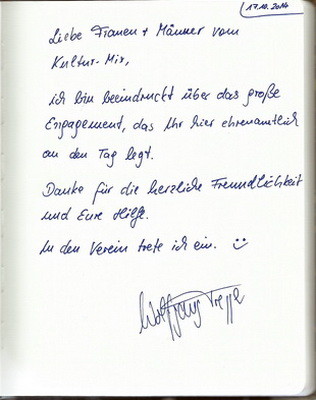 17.10.2014
Liebe Frauen + Männer vom
Kultur-Mix,
ich bin beeindruckt über das große
Engagement, das Ihr hier ehrenamtlich
an den Tag legt.
Danke für die herzliche Freundlichkeit
und Eure Hilfe.
In den Verein trete ich ein. :)
Wolfgang